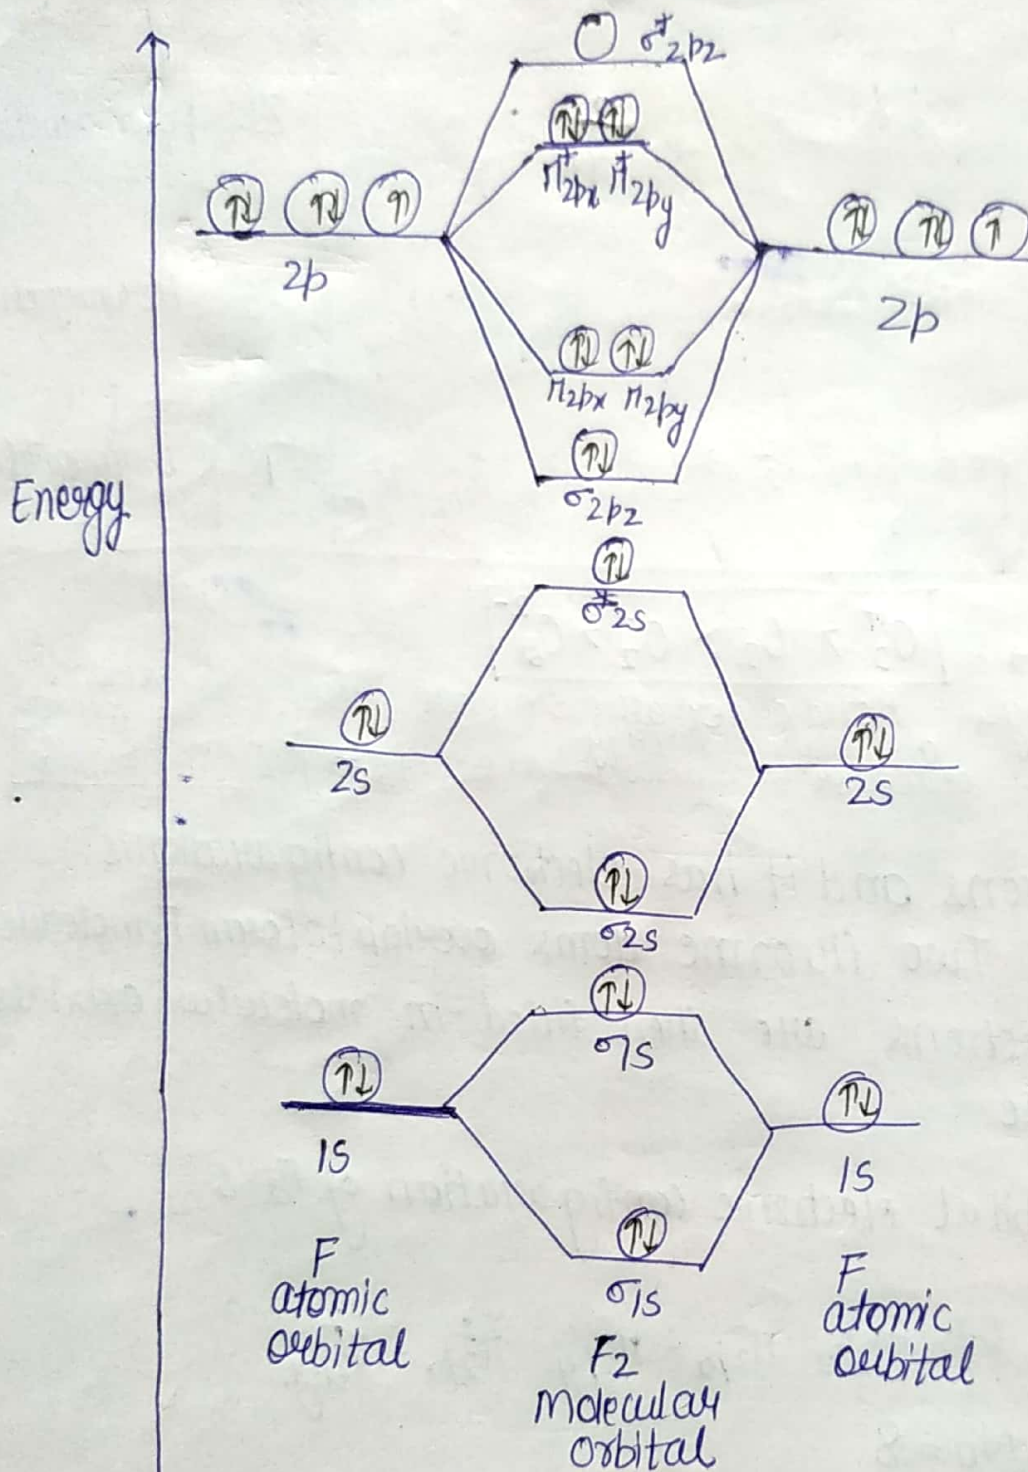 σ*2pz
π*2px π*2py
2p
2p
π2px π2py
σ2pz
Energy
σ*2s
2s
2s
σ2s
σ1s
1s
1s
σ1s
F
atomic
orbital
F2
Molecular
orbital
F
atomic
orbital